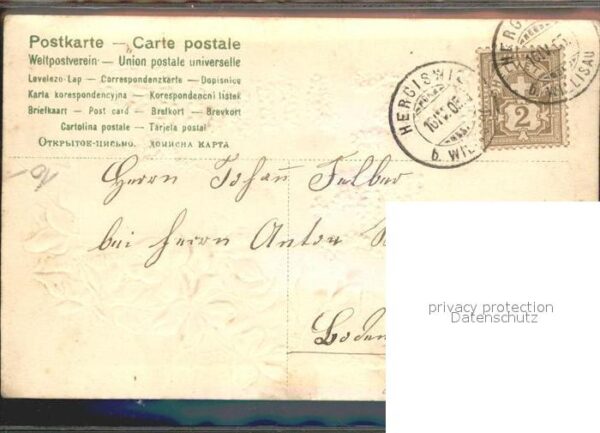 Postkarte — Carte postale
Weltpostverein — Union postale universelle
Levelezo-Lap — Correspondenzkarte — Dopisnice
Karta korespondencyjna — Korespondenční listek
Briefkaart — Post card — Brefkort — Brevkort
Cartolina postale — Tarjeta postal
Открытое-письмо. — дописна карта
10-
HERGISWIL
b. WIL
HERG
b. WILLISAU
2
Herrn Johan Felber
bei Herrn Anton
Boden
privacy protection
Datenschutz